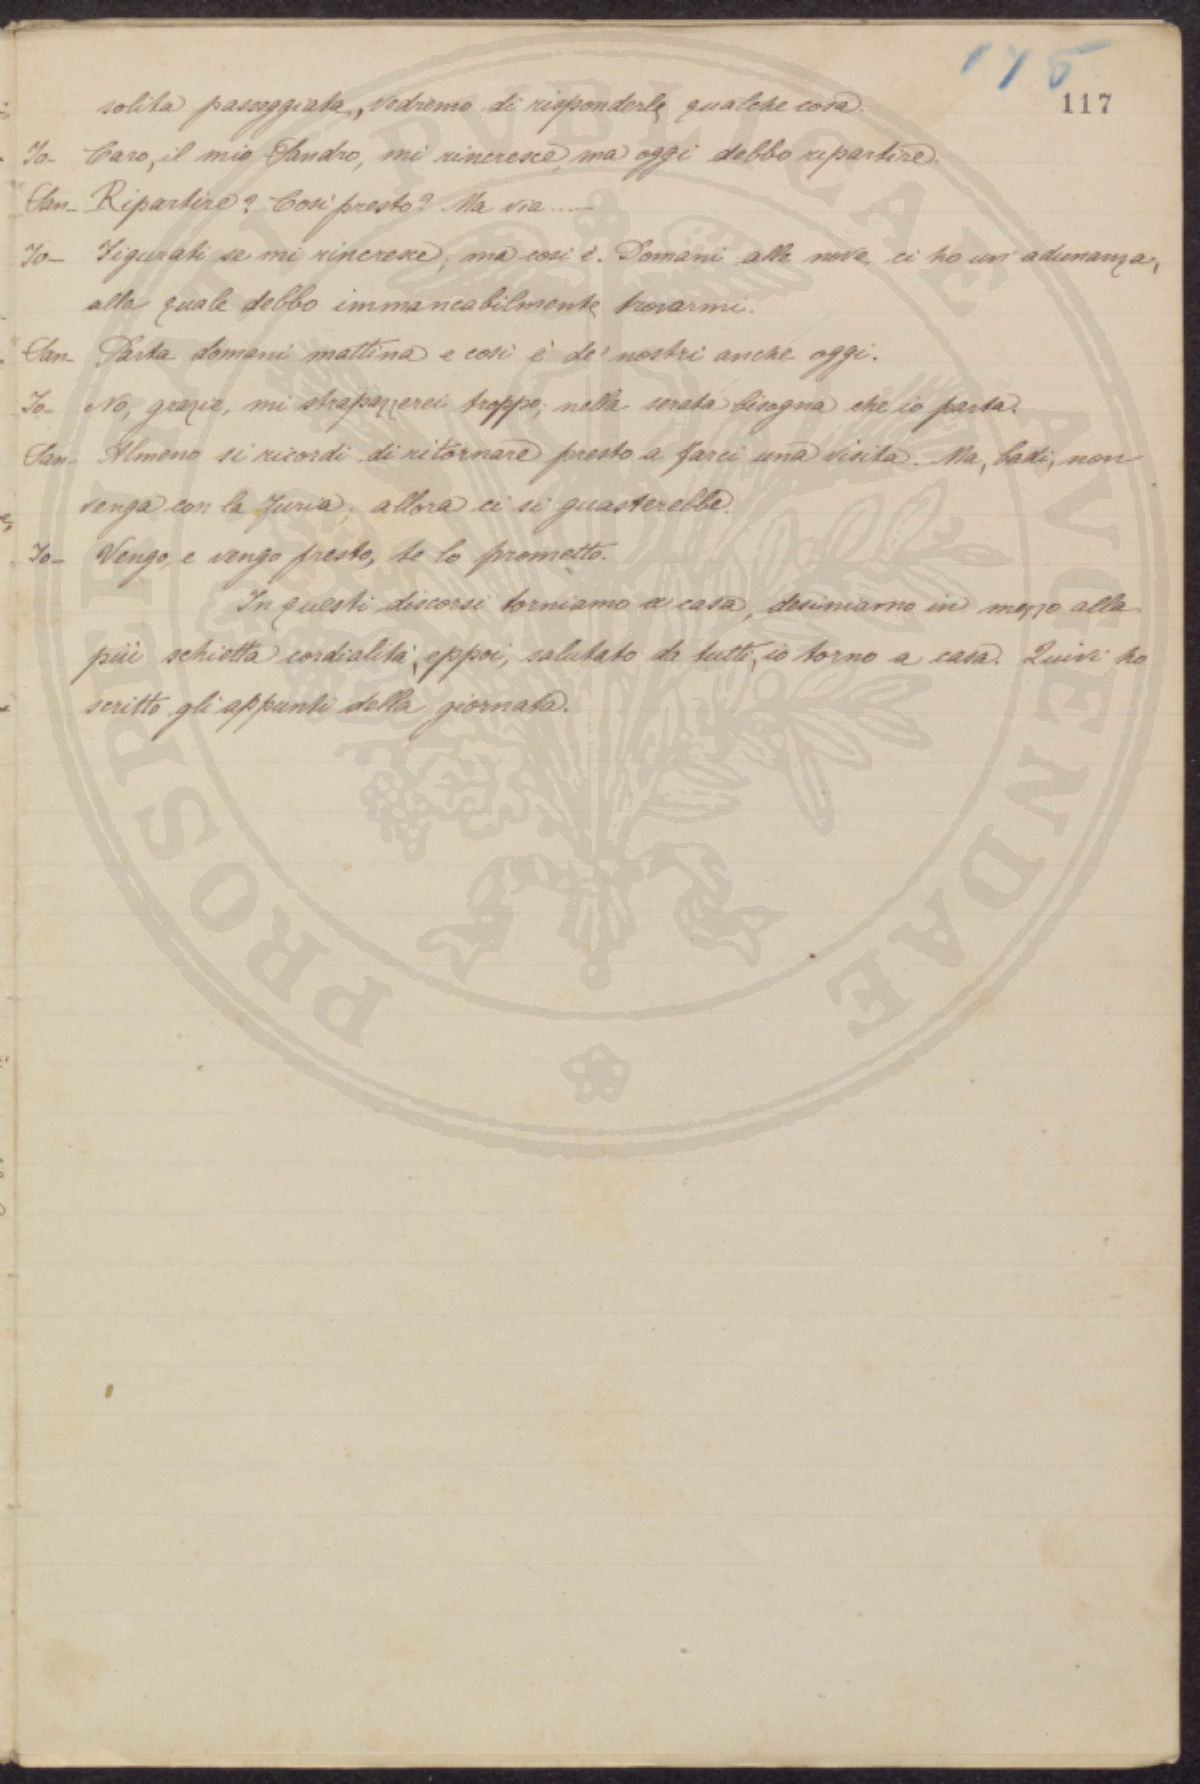 175
117
solita passeggiata, vedremo di risponderle qualche cosa.
Io- Caro, il mio Sandro, mi rincresce, ma oggi debbo ripartire.
San- Ripartire? Così presto? Ma via .....
Io- Figurati se mi rincresce, ma così è. Domani alle nove ci ho un'adunanza,
alla quale debbo immancabilmente trovarmi.
San- Parta domani mattina e così è de' nostri anche oggi.
Io- No, grazie, mi strapazzerei troppo; nella serata bisogna che io parta.
San- Almeno si ricordi di ritornare presto a farci una visita. Ma, badi, non
venga con la furia; allora ci si guasterebbe.
Io- Vengo, e vengo presto, te lo prometto.
In questi discorsi torniamo a casa, desiniamo in mezzo alla
più schietta cordialità, eppoi, salutato da tutti, io torno a casa. Quivi ho
scritto gli appunti della giornata.
PROSPICIENDAE PVBLICAE AVGENDAE